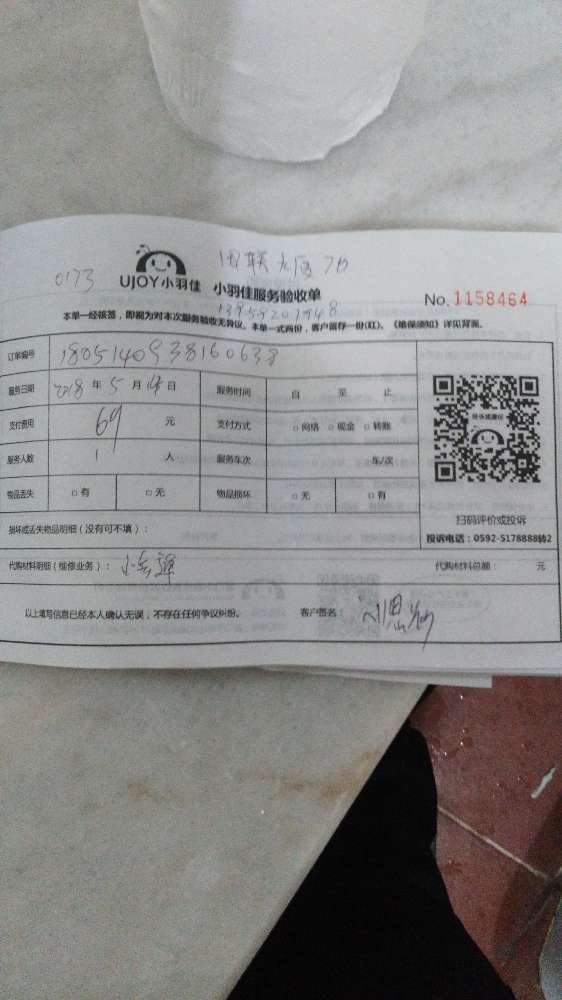 0173
UJOY小羽佳 小羽佳服务验收单
No. 1158464
本单一经核签，即视为对本次服务验收无异议。本单一式两份，客户留存一份(红)。《维保须知》详见背面。
订单编号 1805140938160638
服务日期 2018 年 5 月 14 日 服务时间 自 至 止
支付费用 69 元 支付方式 □ 网络 □ 现金 □ 转账
服务人数 1 人 服务车次 车/次
物品丢失 □ 有 □ 无 物品损坏 □ 无 □ 有
扫码评价或投诉
投诉电话：0592-5178888转2
损坏或丢失物品明细（没有可不填）：
代购材料明细（维修业务）： 代购材料总额： 元
以上填写信息已经本人确认无误，不存在任何争议纠纷。 客户签名：